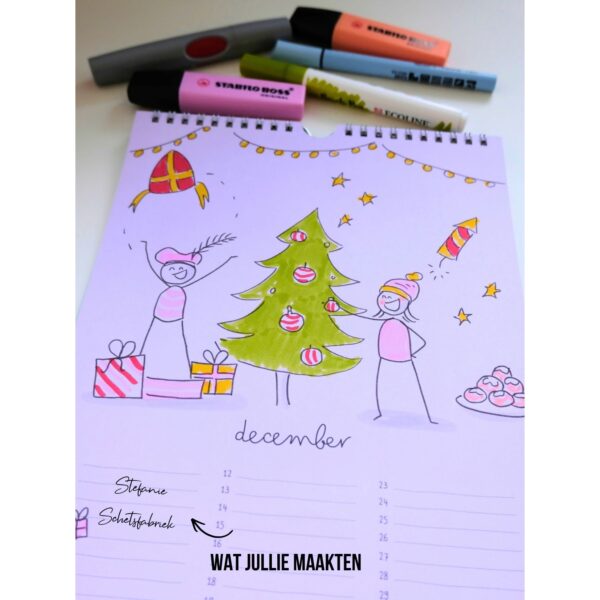 STABILO BOSS
ORIGINAL
STABILO BOSS
ORIGINAL
ECOLINE
december
12
13
14
15
16
18
23
24
25
26
27
28
29
Stefanie
Schetsfabriek
WAT JULLIE MAAKTEN